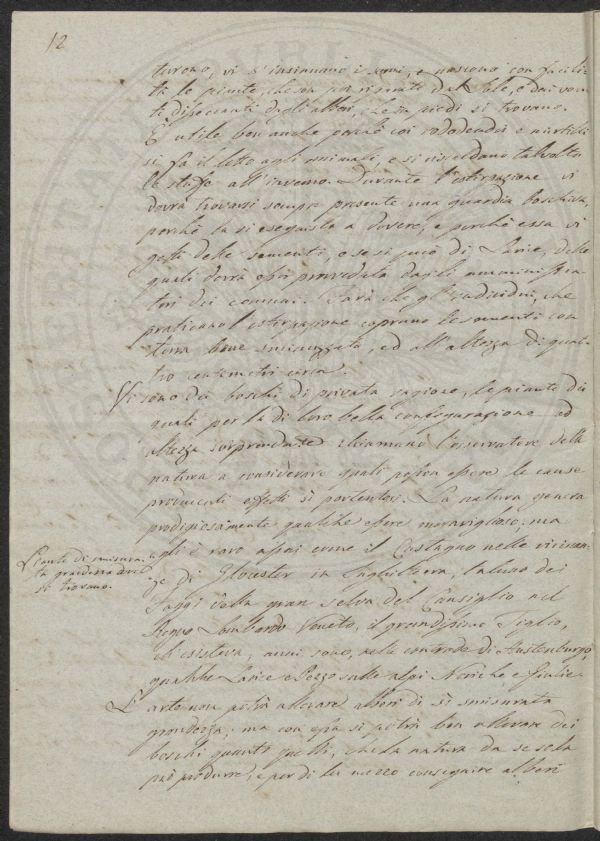 12
terono, vi s'insinuano i semi, e nascono con facili-
tà le piante, che son poi riparati dal Sole, e dai ven-
ti disseccanti dagli alberi, che in piedi si trovano.
È utile ben anche perché coi rododendri e mirtilli
si fa il letto agli animali, e si riscaldano talvolta
le stufe all'inverno. Durante l'estirpazione vi
dovrà trovarsi sempre presente una guardia boschiva,
perché la si eseguisca a dovere, e perché essa vi
getti delle sementi, o se si può di Larice, delle
quali dovrà esser provveduta dagli amministra-
tori dei comuni. Farà che gl'individui, che
praticano l'estirpazione coprano le sementi con
terra bene sminuzzata, ed all'altezza di quat-
tro centimetri circa.
Vi sono dei boschi di privata ragione, le piante dei
quali per la di loro bella configurazione ed
altezza sorprendente chiamano l'osservatore della
natura a considerare quali possan essere le cause
producenti effetti sì portentosi. La natura genera
prodigiosamente qualche essere maraviglioso; ma
egli è raro assai come il Castagno nelle vicinan-
ze di Glocester in Inghilterra, taluno dei
Faggi della gran selva del Cansiglio nel
Regno Lombardo Veneto, il grandissimo Tiglio,
ch'esisteva, anni sono, nelle contrade di Austenburgo,
qualche Larice e Pezzo sulle alpi Noriche e Giulie.
L'arte non potrà allevare alberi di sì smisurata
grandezza; ma con essa si potrà ben allevare dei
boschi quanto quelli, che la natura da se sola
può produrre, e per di lei mezzo conseguire alberi
Piante di smisura-
ta grandezza ove
si trovano.